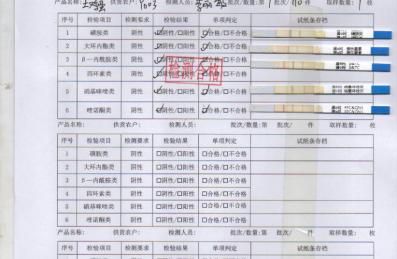 产品名称: 供货农户: 1003 检测人员: 批次/数量:第 批次/110 件 取样数量: 1 枚
序号 检验项目 检测要求 检验结果 单项判定 试纸条存档
1 磺胺类 阴性 ☑阴性/□阳性 ☑合格/□不合格
2 大环内酯类 阴性 ☑阴性/□阳性 ☑合格/□不合格
3 β一内酰胺类 阴性 ☑阴性/□阳性 ☑合格/□不合格
4 四环素类 阴性 ☑阴性/□阳性 ☑合格/□不合格
检测合格
5 硝基咪唑类 阴性 ☑阴性/□阳性 ☑合格/□不合格
6 喹诺酮类 阴性 ☑阴性/□阳性 ☑合格/□不合格
产品名称: 供货农户: 检测人员: 批次/数量:第 批次/ 件 取样数量: 枚
序号 检验项目 检测要求 检验结果 单项判定 试纸条存档
1 磺胺类 阴性 □阴性/□阳性 □合格/□不合格
2 大环内酯类 阴性 □阴性/□阳性 □合格/□不合格
3 β一内酰胺类 阴性 □阴性/□阳性 □合格/□不合格
4 四环素类 阴性 □阴性/□阳性 □合格/□不合格
5 硝基咪唑类 阴性 □阴性/□阳性 □合格/□不合格
6 喹诺酮类 阴性 □阴性/□阳性 □合格/□不合格
产品名称: 供货农户: 检测人员: 批次/数量:第 批次/ 件 取样数量: 枚
序号 检验项目 检测要求 检验结果 单项判定 试纸条存档
1 磺胺类 阴性 □阴性/□阳性 □合格/□不合格